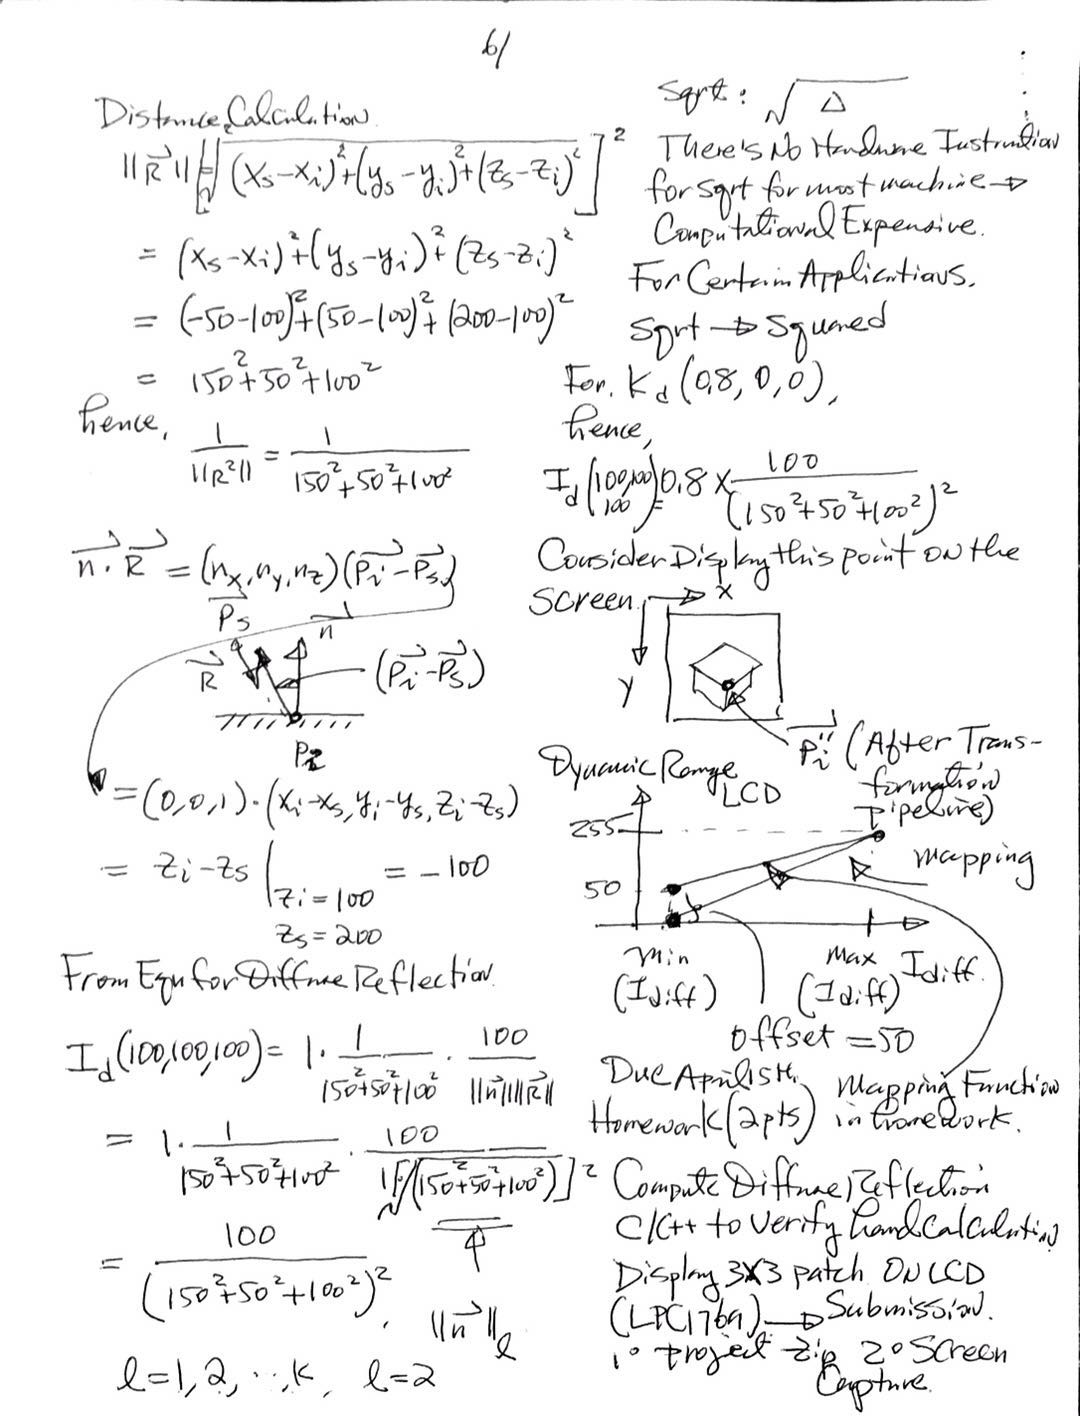 6/
Distance Calculation.
||R⃗|| [√((xs-xi)²+(ys-yi)²+(zs-zi)²)]²
= (xs-xi)²+(ys-yi)²+(zs-zi)²
= (-50-100)²+(50-100)²+(200-100)²
= 150²+50²+100²
hence,
1/||R²|| = 1/(150²+50²+100²)
n⃗·R⃗ = (nx,ny,nz)(P⃗i-P⃗s)
P⃗s
n⃗
R⃗
(P⃗i-P⃗s)
Pi
= (0,0,1)·(xi-xs, yi-ys, zi-zs)
= zi-zs | zi=100 = -100
zs=200
From Eqn for Diffuse Reflection.
Id(100,100,100) = 1· 1/(150²+50²+100²) · 100/(||n⃗||||R⃗||)
= 1· 1/(150²+50²+100²) · 100/(1[√(150²+50²+100²)]²)
= 100/(150²+50²+100²)²,
||n⃗||l
l=1,2,..,K, l=2
Sqrt: √Δ
There's No Hardware Instruction
for sqrt for most machine →
Computational Expensive.
For Certain Applications.
Sqrt → Squared
For. Kd (0.8, 0, 0),
hence,
Id(100,100,100) = 0.8 × 100/(150²+50²+100²)²
Consider Display this point ON the
Screen.
x
y
P⃗i'' (After Trans-
formation
pipeline)
Dynamic Range
LCD
255
50
mapping
Min
(Idiff)
Max
(Idiff)
Idiff.
offset = 50
Due April 15th,
Homework (2pts)
Mapping Function
in homework.
Compute Diffuse Reflection
C/C++ to verify hand calculation
Display 3X3 patch ON LCD
(LPC1769) → Submission.
1° project zip 2° Screen
Capture.